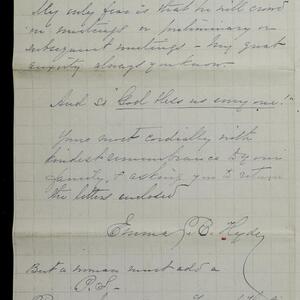 My only fear is that he will crowd
in meetings or preliminary or
subsequent meetings – my great
anxiety always you know.
And so "God bless us every one!"
Yours most cordially with
kindest remembrance to your
family, & asking you to return
the letters enclosed
Emma C. E. Hyde
But a woman must add a
P.S.